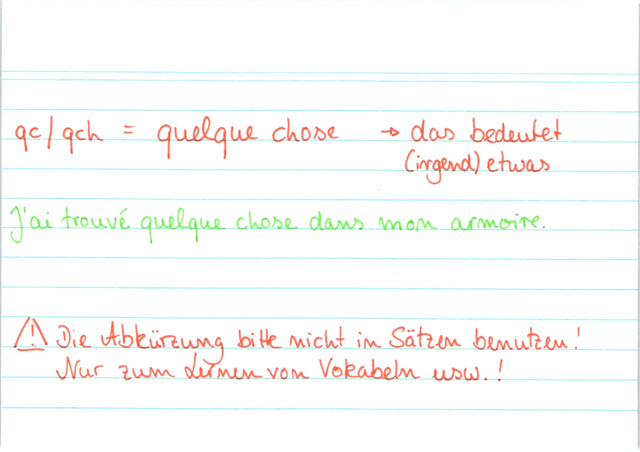 qc/qch = quelque chose → das bedeutet
(irgend)etwas
J'ai trouvé quelque chose dans mon armoire.
⚠ Die Abkürzung bitte nicht in Sätzen benutzen!
Nur zum Lernen von Vokabeln usw.!